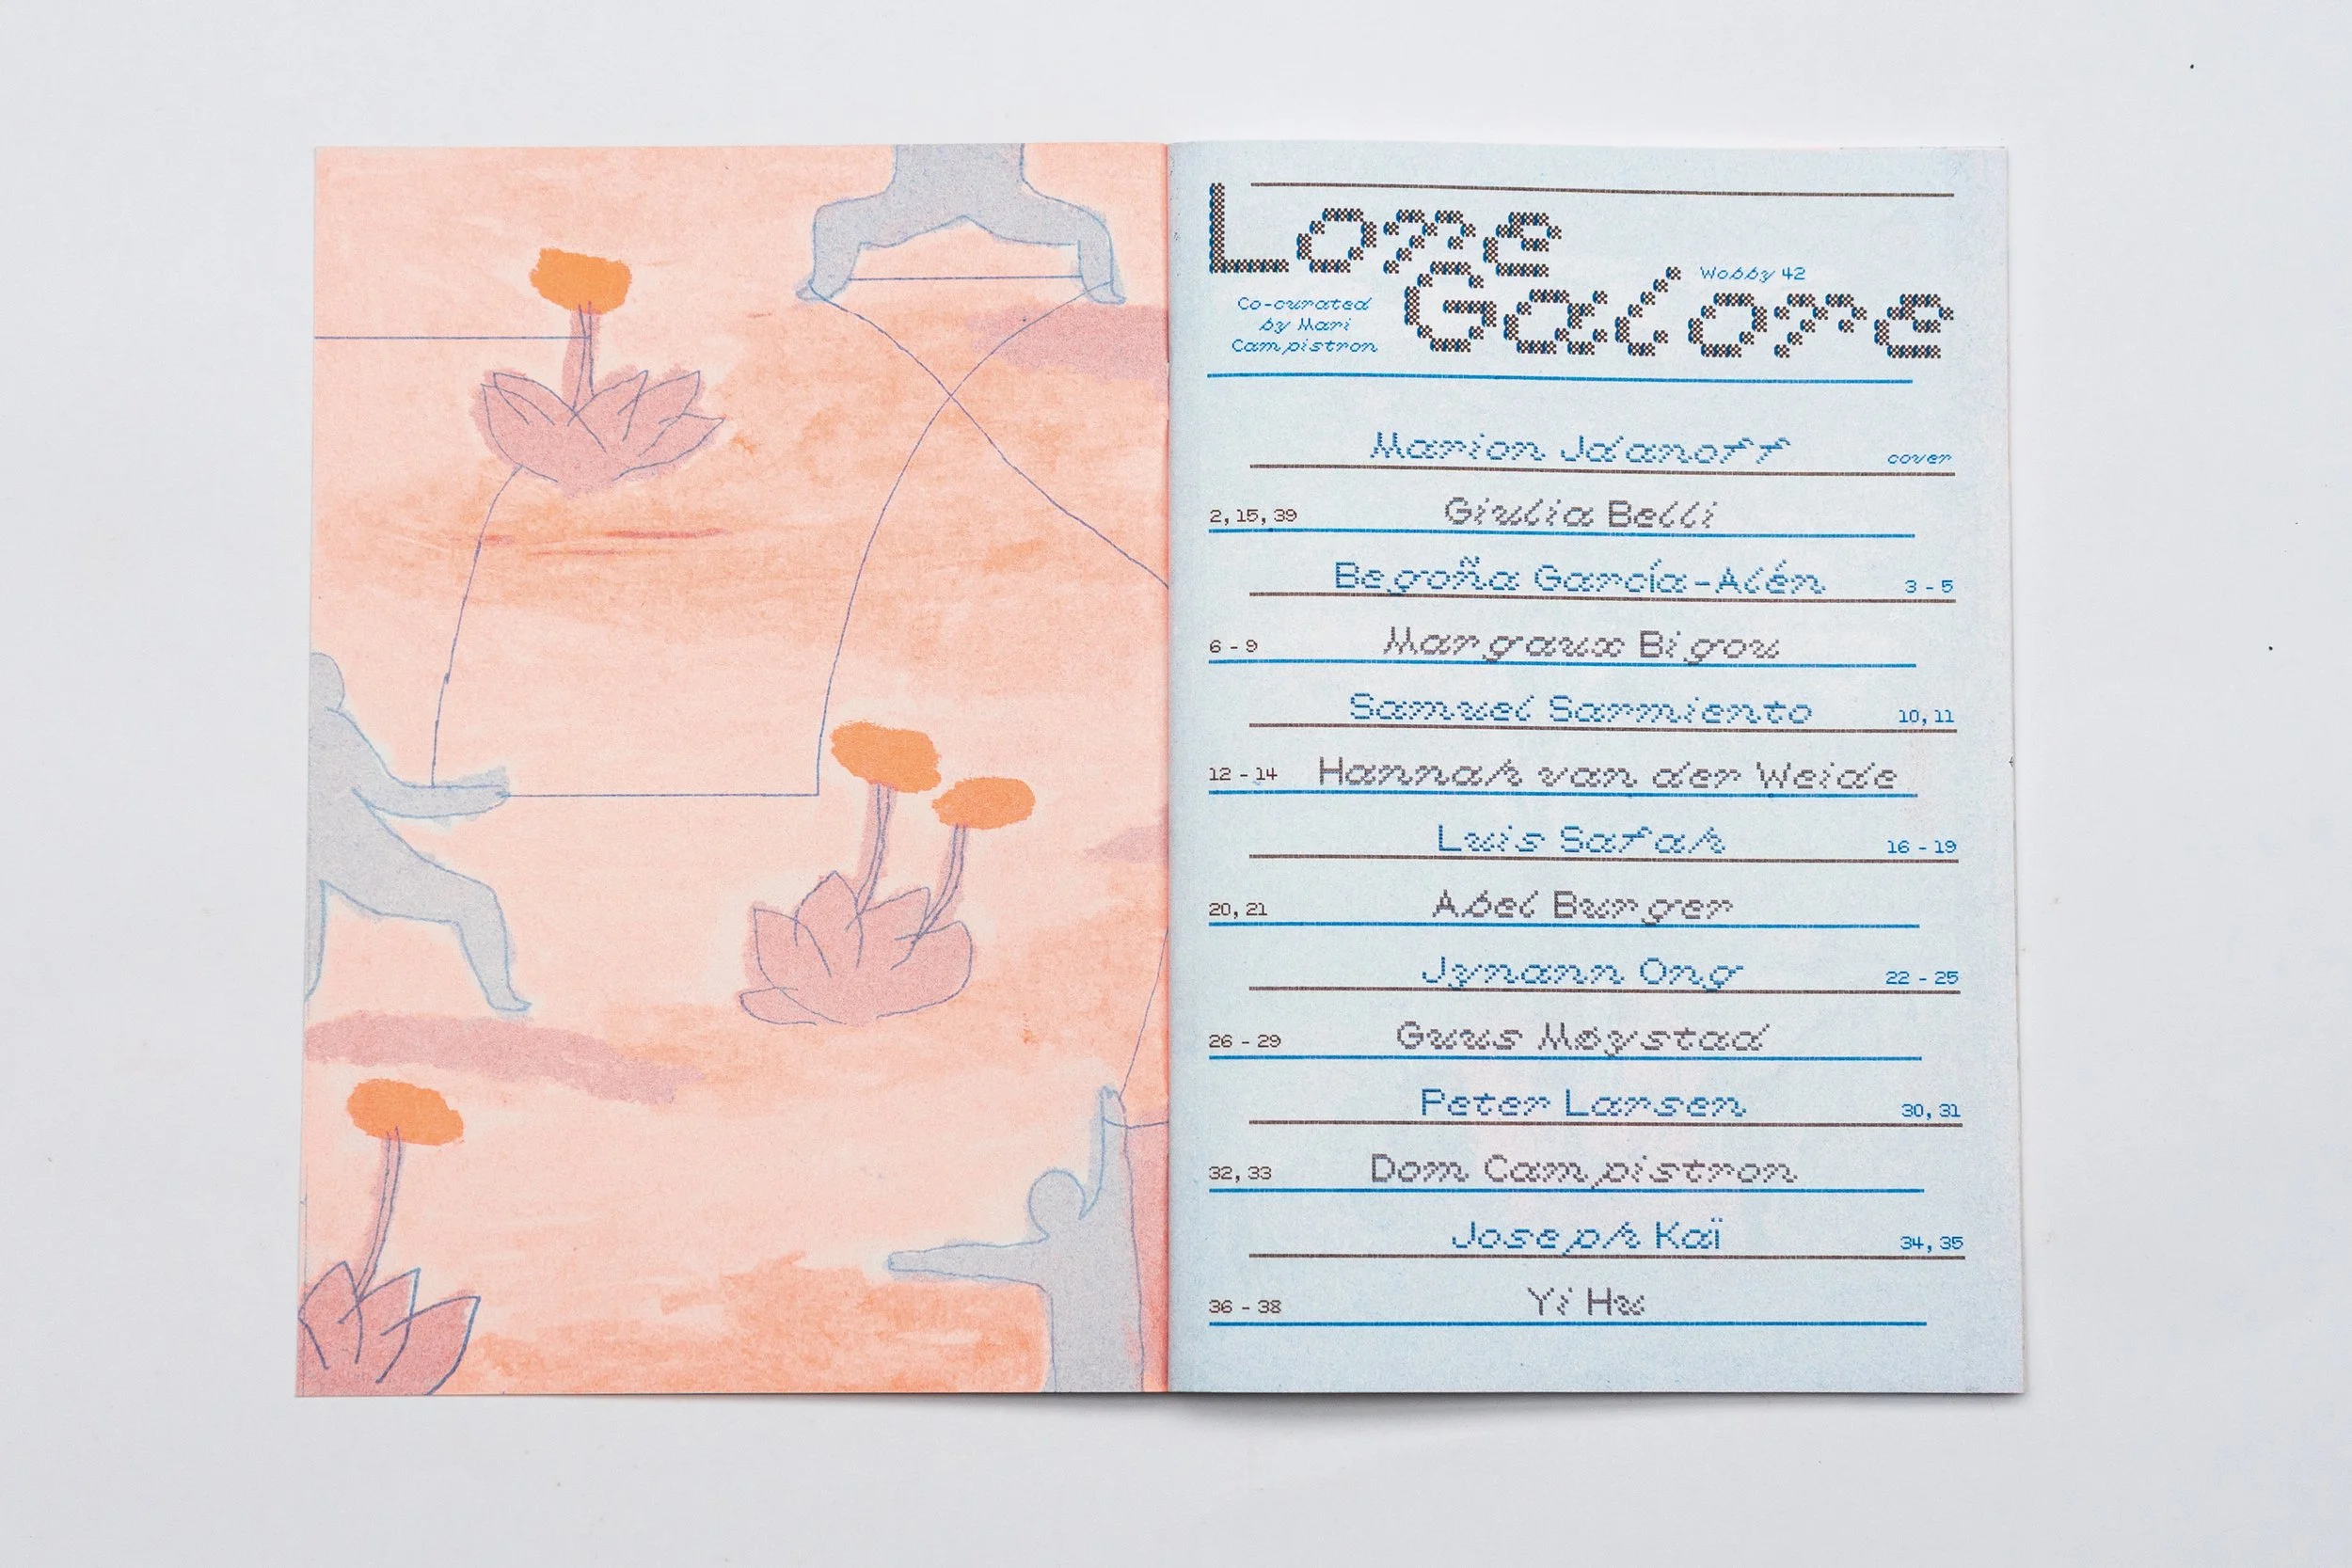 Lore
Galore
Wobby 42
Co-curated
by Mari
Campistron
Marion Jdanoff cover
2, 15, 39 Giulia Belli
Begoña García-Alén 3 - 5
6 - 9 Margaux Bigou
Samuel Sarmiento 10, 11
12 - 14 Hannah van der Weide
Luis Safah 16 - 19
20, 21 Abel Burger
Jynann Ong 22 - 25
26 - 29 Guus Møystad
Peter Larsen 30, 31
32, 33 Dom Campistron
Joseph Kaï 34, 35
36 - 38 Yi Hu